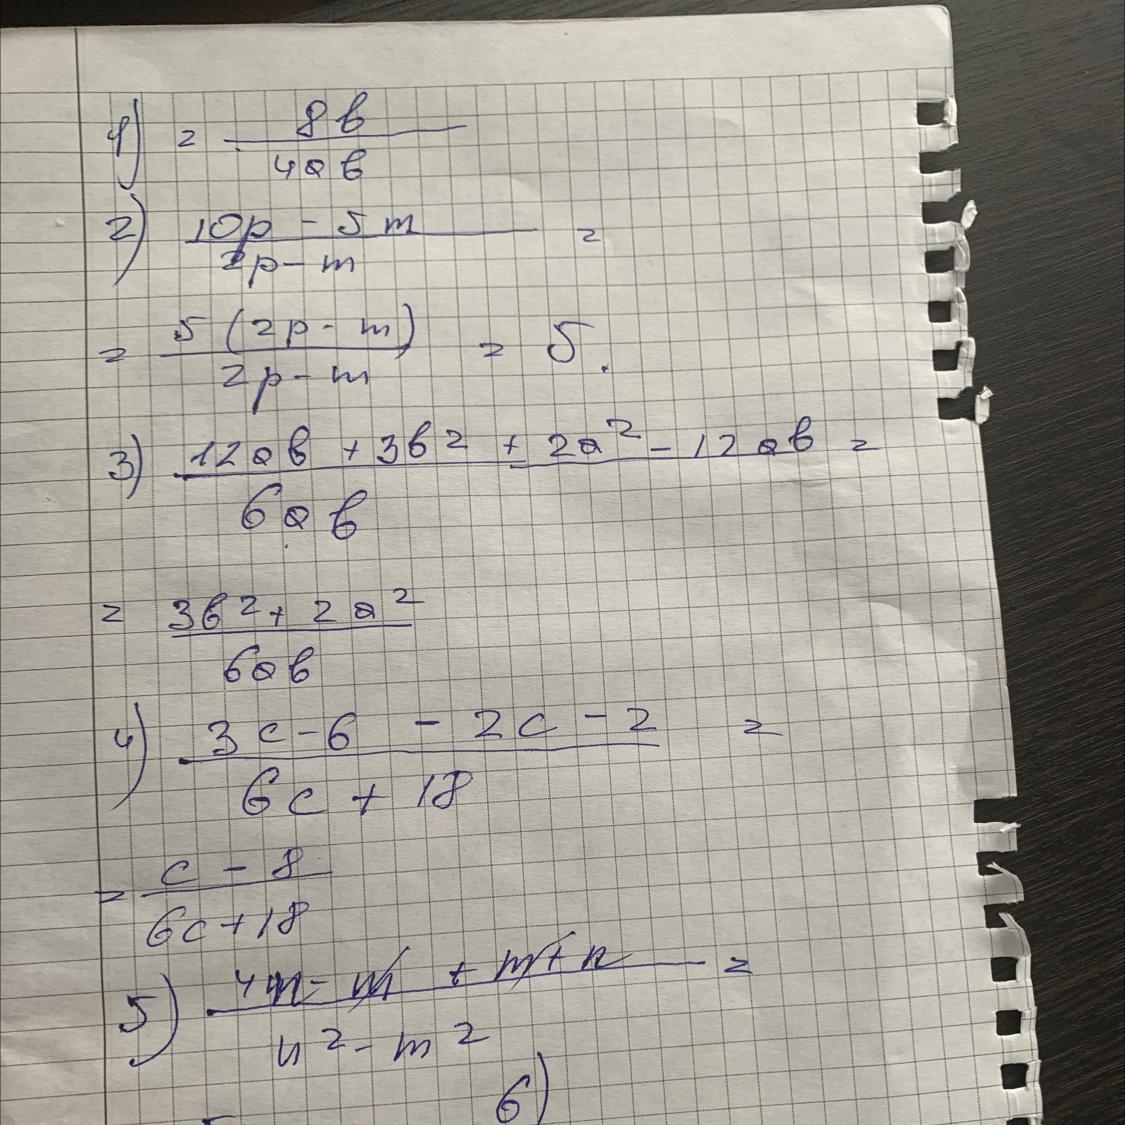 1) = 8b / 4ab
2) 10p - 5m / 2p - m =
= 5(2p - m) / 2p - m = 5.
3) 12ab + 3b² + 2a² - 12ab / 6ab =
= 3b² + 2a² / 6ab
4) 3c - 6 - 2c - 2 / 6c + 18 =
= c - 8 / 6c + 18
5) 4n - m + m + n / n² - m² =
6)